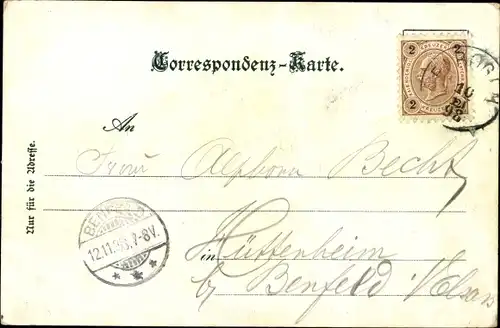 Correspondenz-Karte.
2 KREUZER 2
2 2
10
98
An
Frau Alphons Becht
Nur für die Adresse.
BENFELD
12.11.98.7-8V.
in Hüttenheim
by Benfeld Elsass